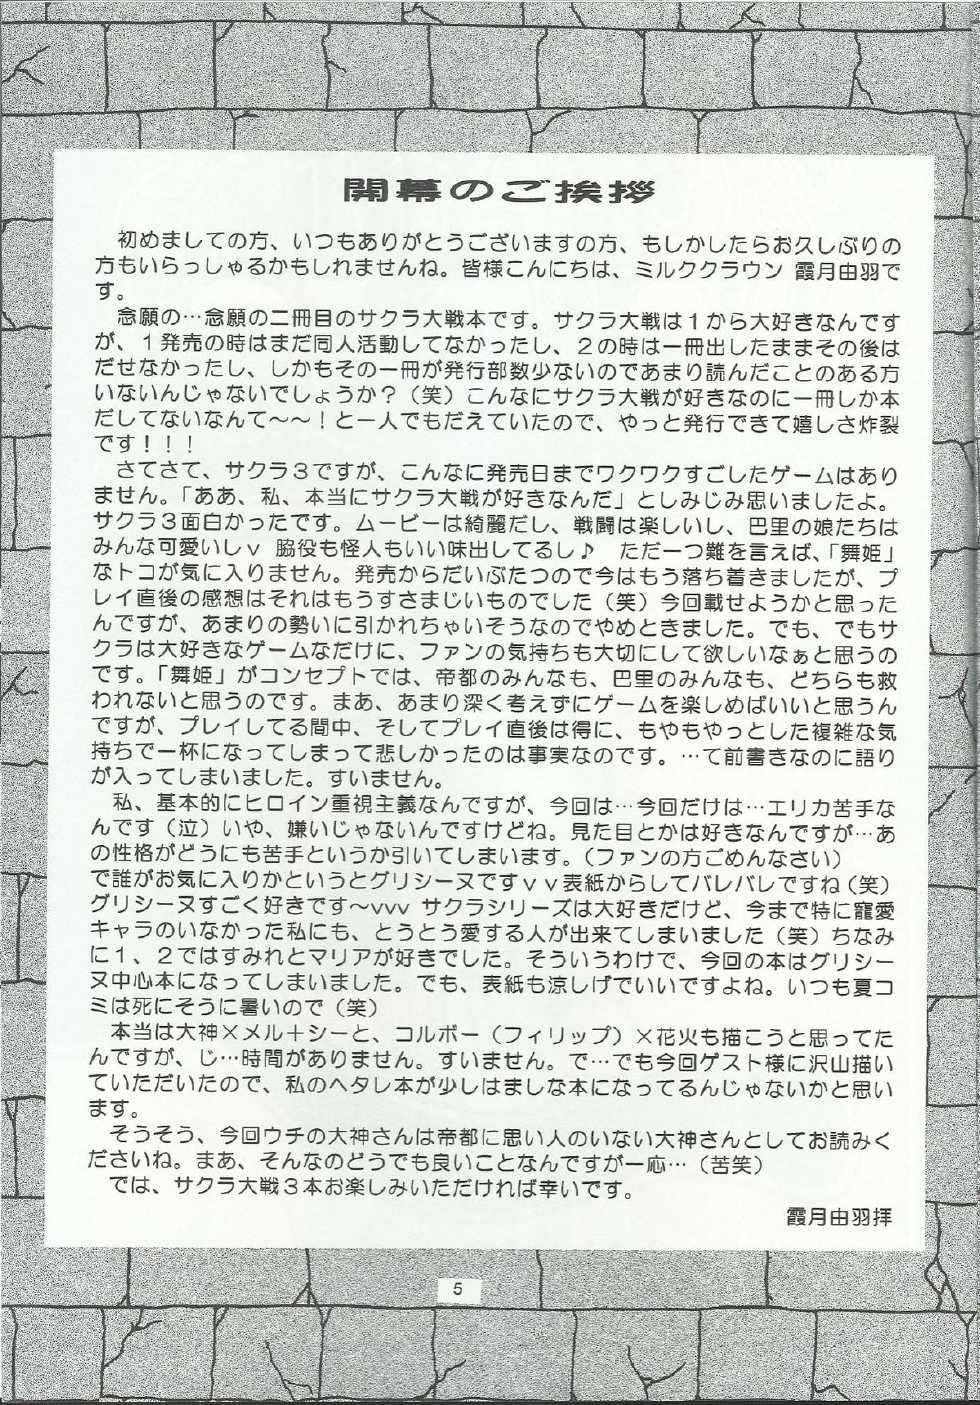 開幕のご挨拶
初めましての方、いつもありがとうございますの方、もしかしたらお久しぶりの
方もいらっしゃるかもしれませんね。皆様こんにちは、ミルククラウン 霞月由羽で
す。
念願の…念願の二冊目のサクラ大戦本です。サクラ大戦は１から大好きなんです
が、１発売の時はまだ同人活動してなかったし、２の時は一冊出したままその後は
だせなかったし、しかもその一冊が発行部数少ないのであまり読んだことのある方
いないんじゃないでしょうか？（笑）こんなにサクラ大戦が好きなのに一冊しか本
だしてないなんて～～！と一人でもだえていたので、やっと発行できて嬉しさ炸裂
です！！！
さてさて、サクラ３ですが、こんなに発売日までワクワクすごしたゲームはあり
ません。「ああ、私、本当にサクラ大戦が好きなんだ」としみじみ思いましたよ。
サクラ３面白かったです。ムービーは綺麗だし、戦闘は楽しいし、巴里の娘たちは
みんな可愛いしｖ 脇役も怪人もいい味出してるし♪　ただ一つ難を言えば、「舞姫」
なトコが気に入りません。発売からだいぶたつので今はもう落ち着きましたが、プ
レイ直後の感想はそれはもうすさまじいものでした（笑）今回載せようかと思った
んですが、あまりの勢いに引かれちゃいそうなのでやめときました。でも、でもサ
クラは大好きなゲームなだけに、ファンの気持ちも大切にして欲しいなぁと思うの
です。「舞姫」がコンセプトでは、帝都のみんなも、巴里のみんなも、どちらも救
われないと思うのです。まあ、あまり深く考えずにゲームを楽しめばいいと思うん
ですが、プレイしてる間中、そしてプレイ直後は得に、もやもやっとした複雑な気
持ちで一杯になってしまって悲しかったのは事実なのです。…て前書きなのに語り
が入ってしまいました。すいません。
私、基本的にヒロイン重視主義なんですが、今回は…今回だけは…エリカ苦手な
んです（泣）いや、嫌いじゃないんですけどね。見た目とかは好きなんですが…あ
の性格がどうにも苦手というか引いてしまいます。（ファンの方ごめんなさい）
で誰がお気に入りかというとグリシーヌですｖｖ表紙からしてバレバレですね（笑）
グリシーヌすごく好きです～ｖｖｖ サクラシリーズは大好きだけど、今まで特に寵愛
キャラのいなかった私にも、とうとう愛する人が出来てしまいました（笑）ちなみ
に１、２ではすみれとマリアが好きでした。そういうわけで、今回の本はグリシー
ヌ中心本になってしまいました。でも、表紙も涼しげでいいですよね。いつも夏コ
ミは死にそうに暑いので（笑）
本当は大神×メル＋シーと、コルボー（フィリップ）×花火も描こうと思ってた
んですが、じ…時間がありません。すいません。で…でも今回ゲスト様に沢山描い
ていただいたので、私のヘタレ本が少しはましな本になってるんじゃないかと思い
ます。
そうそう、今回ウチの大神さんは帝都に思い人のいない大神さんとしてお読みく
ださいね。まあ、そんなのどうでも良いことなんですが一応…（苦笑）
では、サクラ大戦３本お楽しみいただければ幸いです。
霞月由羽拝
5